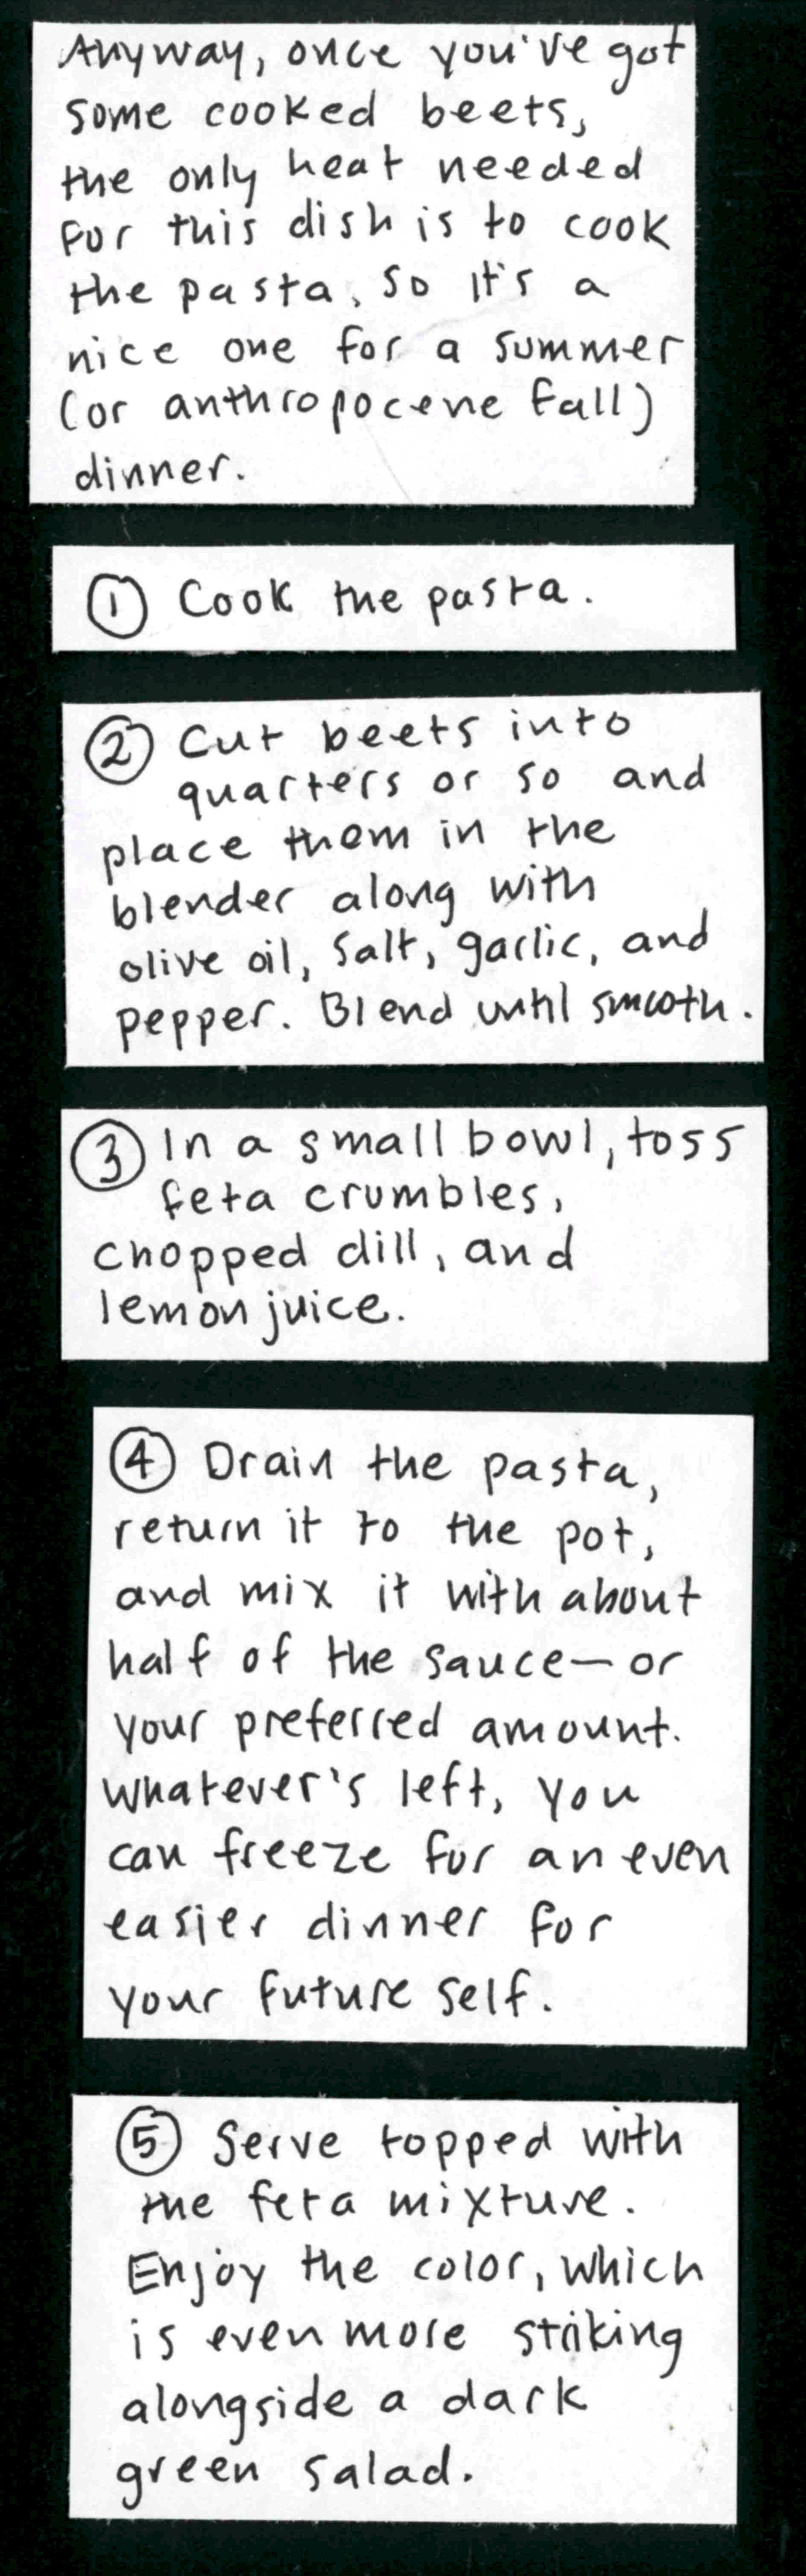 Anyway, once you've got
some cooked beets,
the only heat needed
for this dish is to cook
the pasta. So it's a
nice one for a summer
(or anthropocene fall)
dinner.
① Cook the pasta.
② Cut beets into
quarters or so and
place them in the
blender along with
olive oil, salt, garlic, and
pepper. Blend until smooth.
③ In a small bowl, toss
feta crumbles,
chopped dill, and
lemon juice.
④ Drain the pasta,
return it to the pot,
and mix it with about
half of the sauce—or
your preferred amount.
Whatever's left, you
can freeze for an even
easier dinner for
your future self.
⑤ Serve topped with
the feta mixture.
Enjoy the color, which
is even more striking
alongside a dark
green salad.